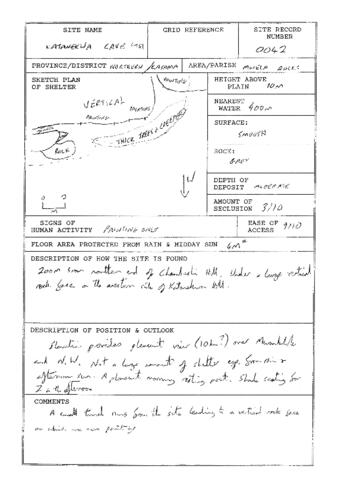 SITE NAME
GRID REFERENCE
SITE RECORD
NUMBER
CAVE
0042
PROVINCE/DISTRICT NORTHERN/KASAMA
AREA/PARISH MWELA ROCKS
SKETCH PLAN
OF SHELTER
PAINTINGS
VERTICAL
PAINTINGS
THICK TREES & CREEPERS
ROCK
N
0 2
M
HEIGHT ABOVE
PLAIN 10m
NEAREST
WATER 400m
SURFACE:
SMOOTH
ROCK:
GREY
DEPTH OF
DEPOSIT MODERATE
AMOUNT OF
SECLUSION 3/10
SIGNS OF
HUMAN ACTIVITY PAINTING ONLY
EASE OF
ACCESS 9/10
FLOOR AREA PROTECTED FROM RAIN & MIDDAY SUN 6M²
DESCRIPTION OF HOW THE SITE IS FOUND
200m from northern end of Hill. Under a large vertical
rock face on the western side of Hill.
DESCRIPTION OF POSITION & OUTLOOK
provides pleasant view (10km?) over
and N.W. Not a large amount of shelter esp. from rain &
afternoon sun. A pleasant morning resting point. Shade casting for
in the afternoon
COMMENTS
A small tunnel runs from the site leading to a vertical rock face
on which are painting